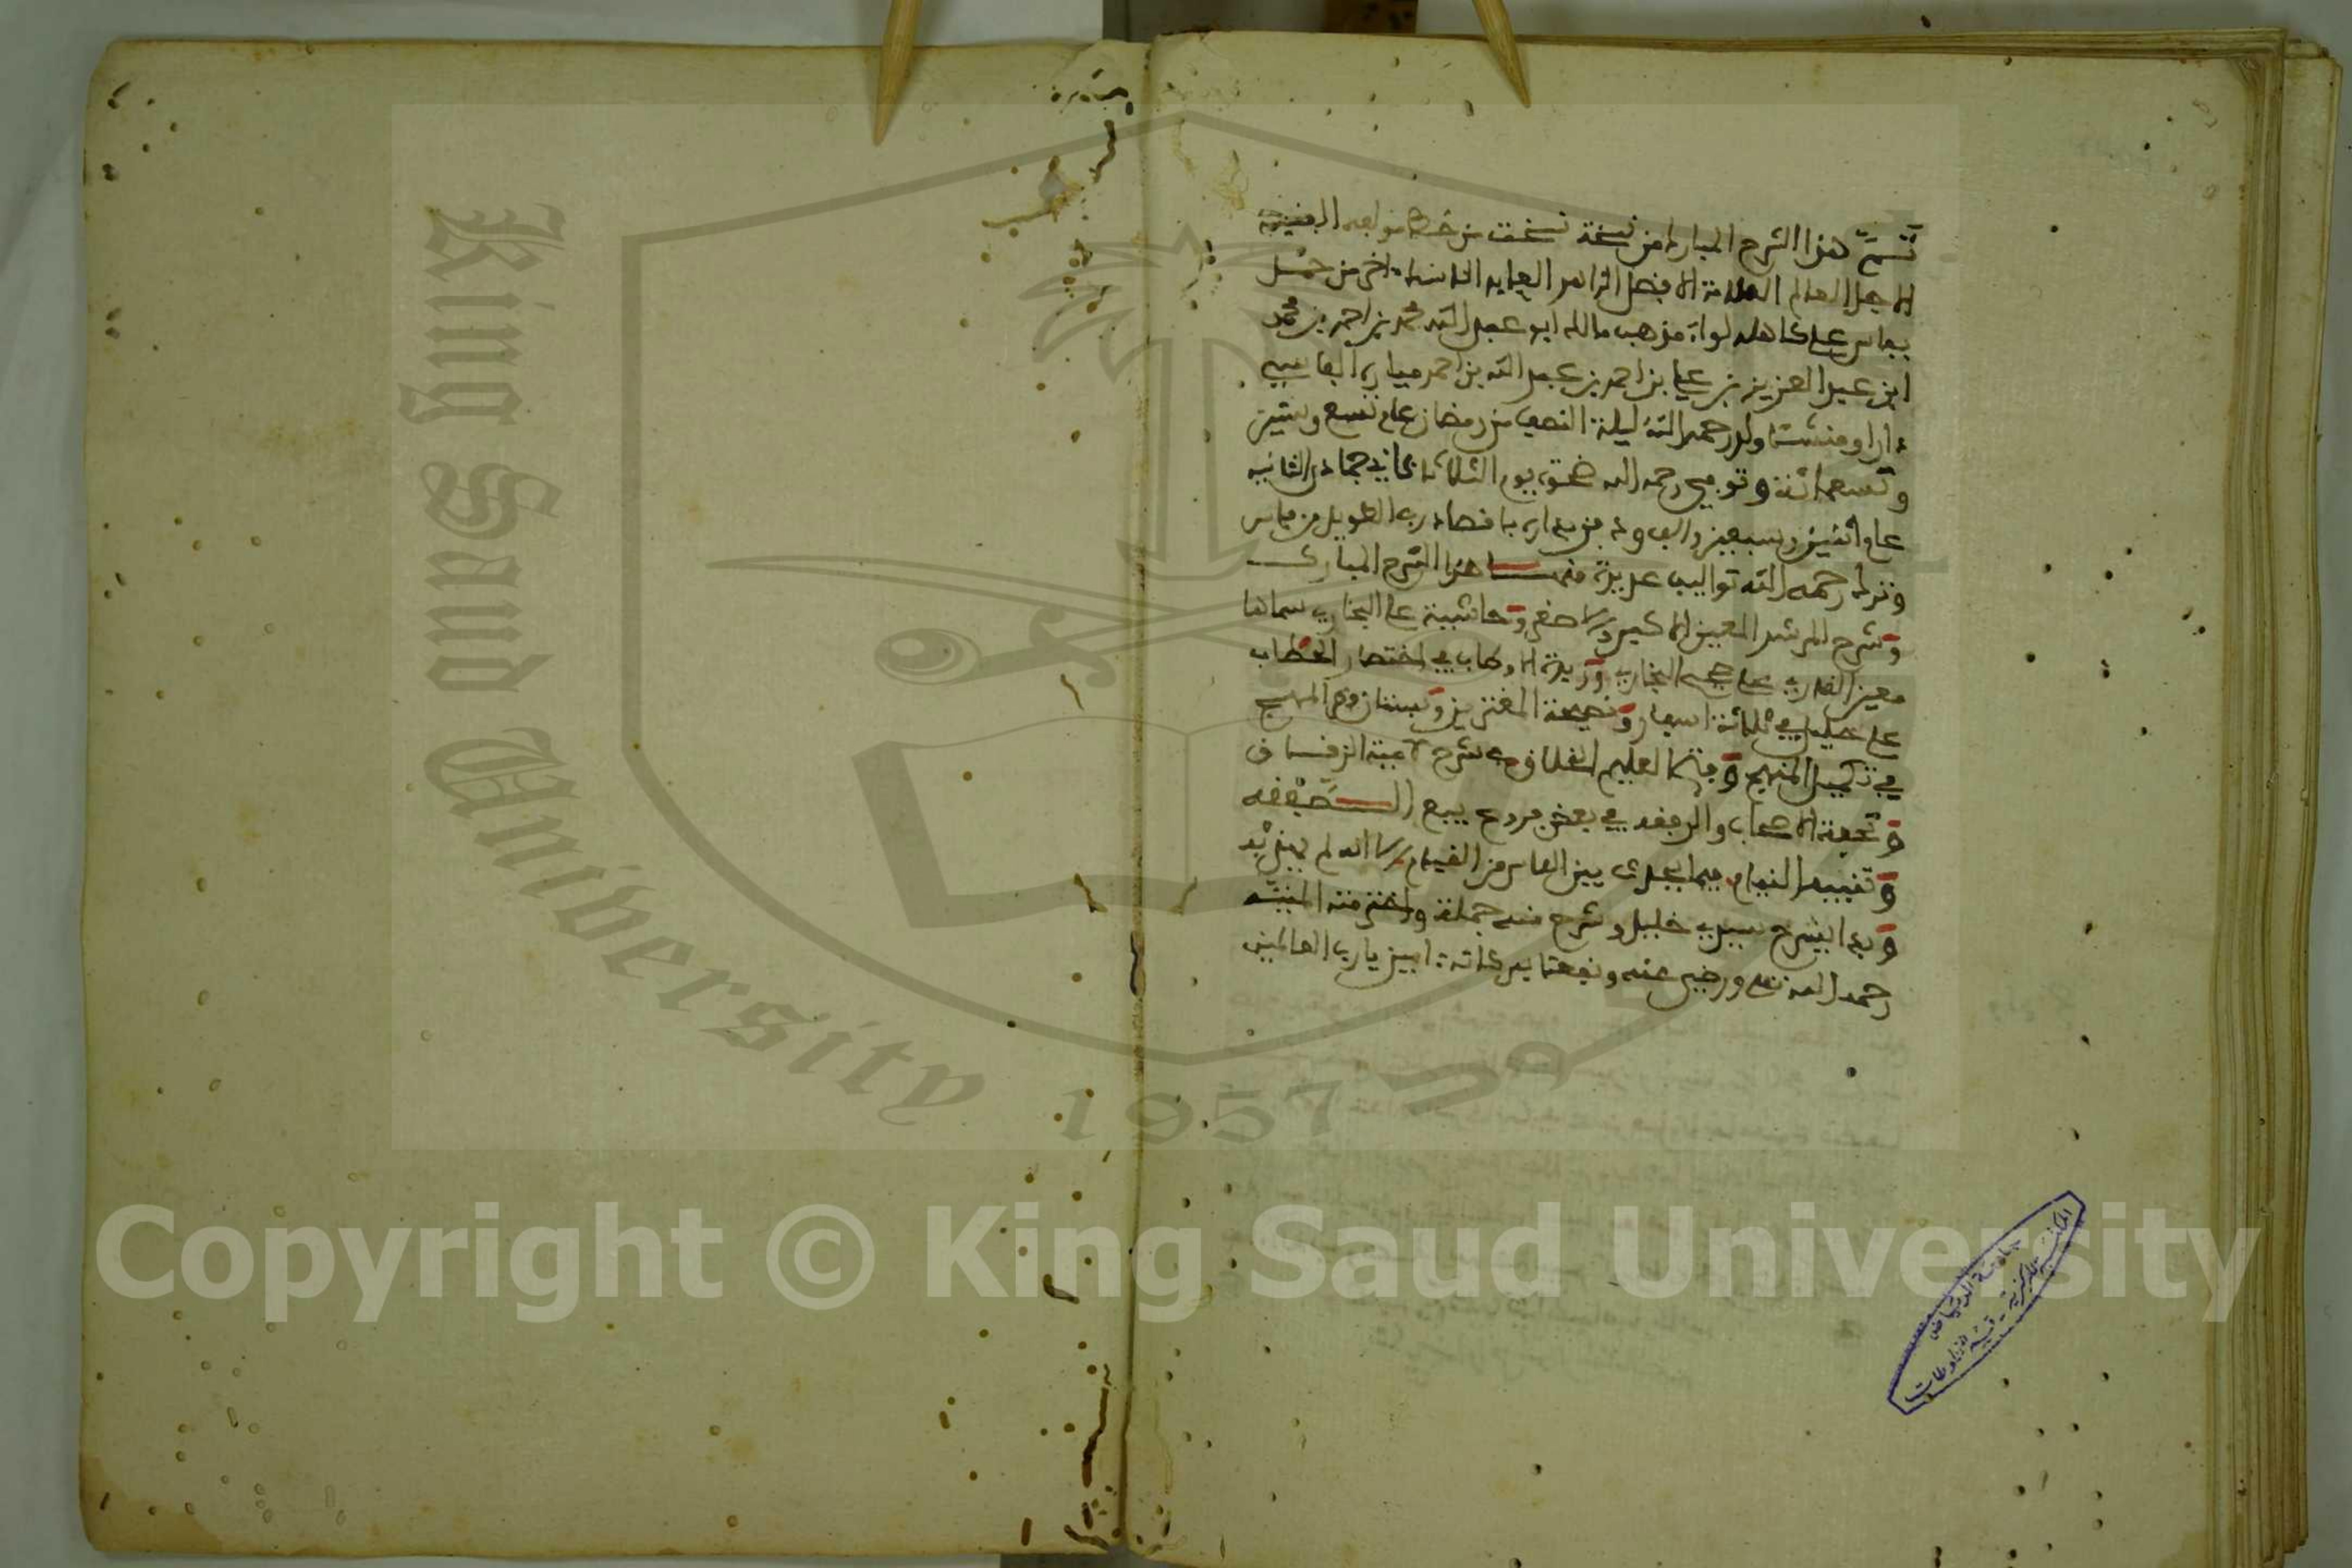 تم هذا الشرح المبارك من نسخة نسخت من خط مولفه الفقيه
الاجل العالم العلامة الافضل الزاهد العابد الناسك اخر من حمل
بفاس على كاهله لواء مذهب مالك ابو عبد الله محمد بن احمد بن محمد
ابن عبد العزيز بن علي بن احمد بن عبد الله بن احمد ميارة الفاسي
دارا ومنشئا ولد رحمه الله ليلة النصف من رمضان عام تسع وتسعين
وتسعمائة وتوفي رحمه الله ضحوة يوم الثلاثاء ثاني جمادى الثانية
عام اثنين وسبعين والف ودفن بداره باقصا درب الطويل من فاس
وترك رحمه الله تواليف عديدة منها هذا الشرح المبارك
وشرح المرشد المعين الاكبر والاصغر وحاشية على البخاري سماها
معين القاري على صحيح البخاري وزبدة الاوطاب في اختصار الحطاب
على خليل في ثلاثة اسفار ونصيحة المغترين وبستان فكر المهج
في تكميل المنهج وفتح العليم الخلاق في شرح لامية الزقاق
وتحفة الاصحاب والرفقه في بعض فروع بيع الصفقه
وتنبيه النيام فيما يجري بين الناس من القيام الا انه لم
وبدا بشرح سيدي خليل وشرح منه جملة واخترمته المنيه
رحمه الله تعلى ورضي عنه ونفعنا ببركاته امين يا رب العالمين
جامعة الرياض
المكتبة المركزية - قسم المخطوطات
King Saud University
1957
Copyright © King Saud University